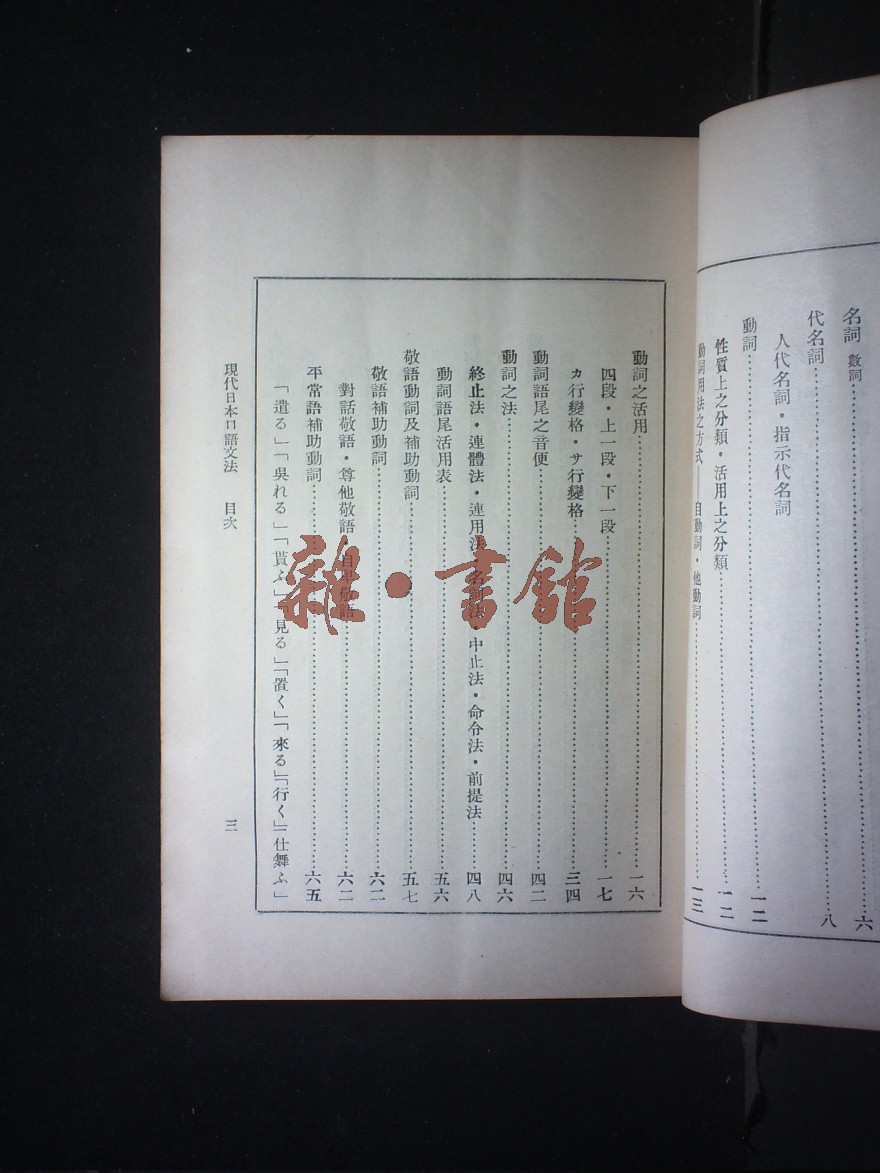 名詞 數詞……六
代名詞……八
人代名詞・指示代名詞
動詞……一二
性質上之分類・活用上之分類……一二
動詞用法之方式——自動詞・他動詞……一三
動詞之活用……一六
四段・上一段・下一段……一七
カ行變格・サ行變格……三四
動詞語尾之音便……四二
動詞之法……四六
終止法・連體法・連用法・名詞法・中止法・命令法・前提法……四八
動詞語尾活用表……五六
敬語動詞及補助動詞……五七
敬語補助動詞……六二
對話敬語・尊他敬語・自卑敬語……六二
平常語補助動詞……六五
「遣る」「吳れる」「貰ふ」「見る」「置く」「來る」「行く」「仕舞ふ」
現代日本口語文法 目次 三
雜・書館